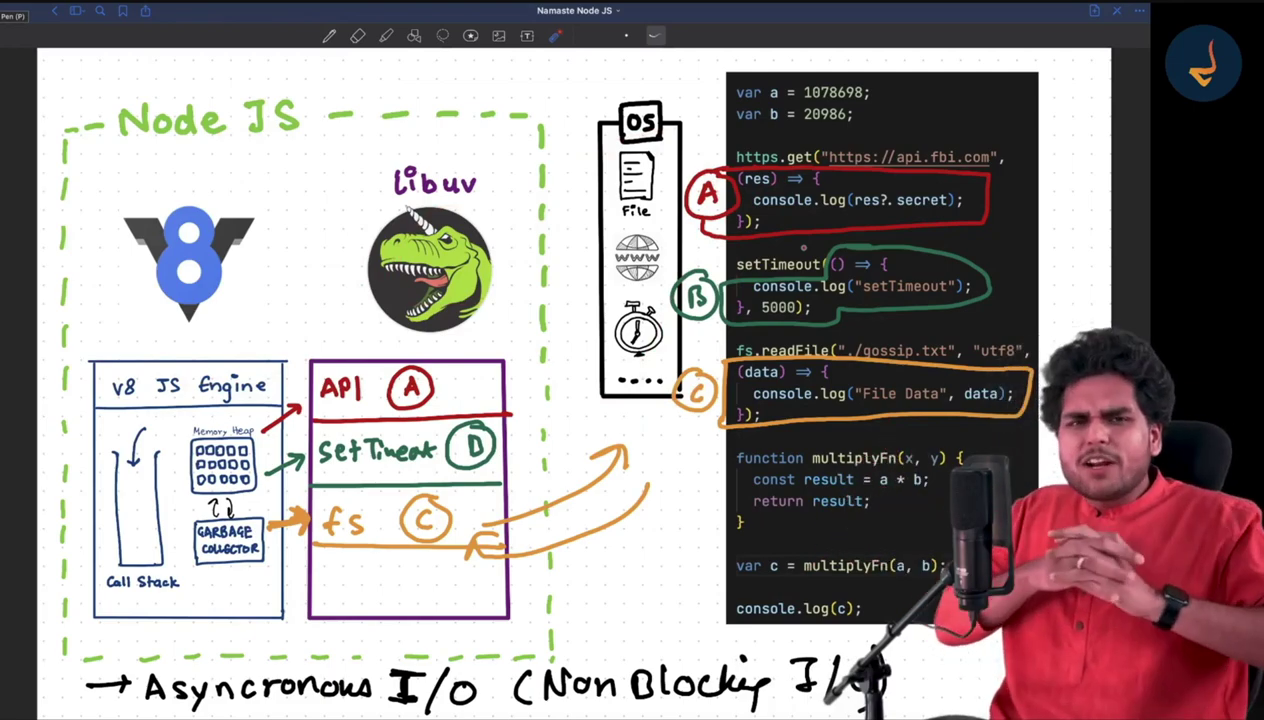 Pen (P)
Namaste Node JS
Node JS
libuv
8
V8 JS Engine
Memory Heap
GARBAGE
COLLECTOR
Call Stack
API A
setTimeout B
fs C
OS
File
WWW
A
B
C
var a = 1078698;
var b = 20986;
https.get("https://api.fbi.com",
(res) => {
console.log(res?.secret);
});
setTimeout(() => {
console.log("setTimeout");
}, 5000);
fs.readFile("./gossip.txt", "utf8",
(data) => {
console.log("File Data", data);
});
function multiplyFn(x, y) {
const result = a * b;
return result;
}
var c = multiplyFn(a, b);
console.log(c);
→ Asyncronous I/O (Non Blocking I/O)